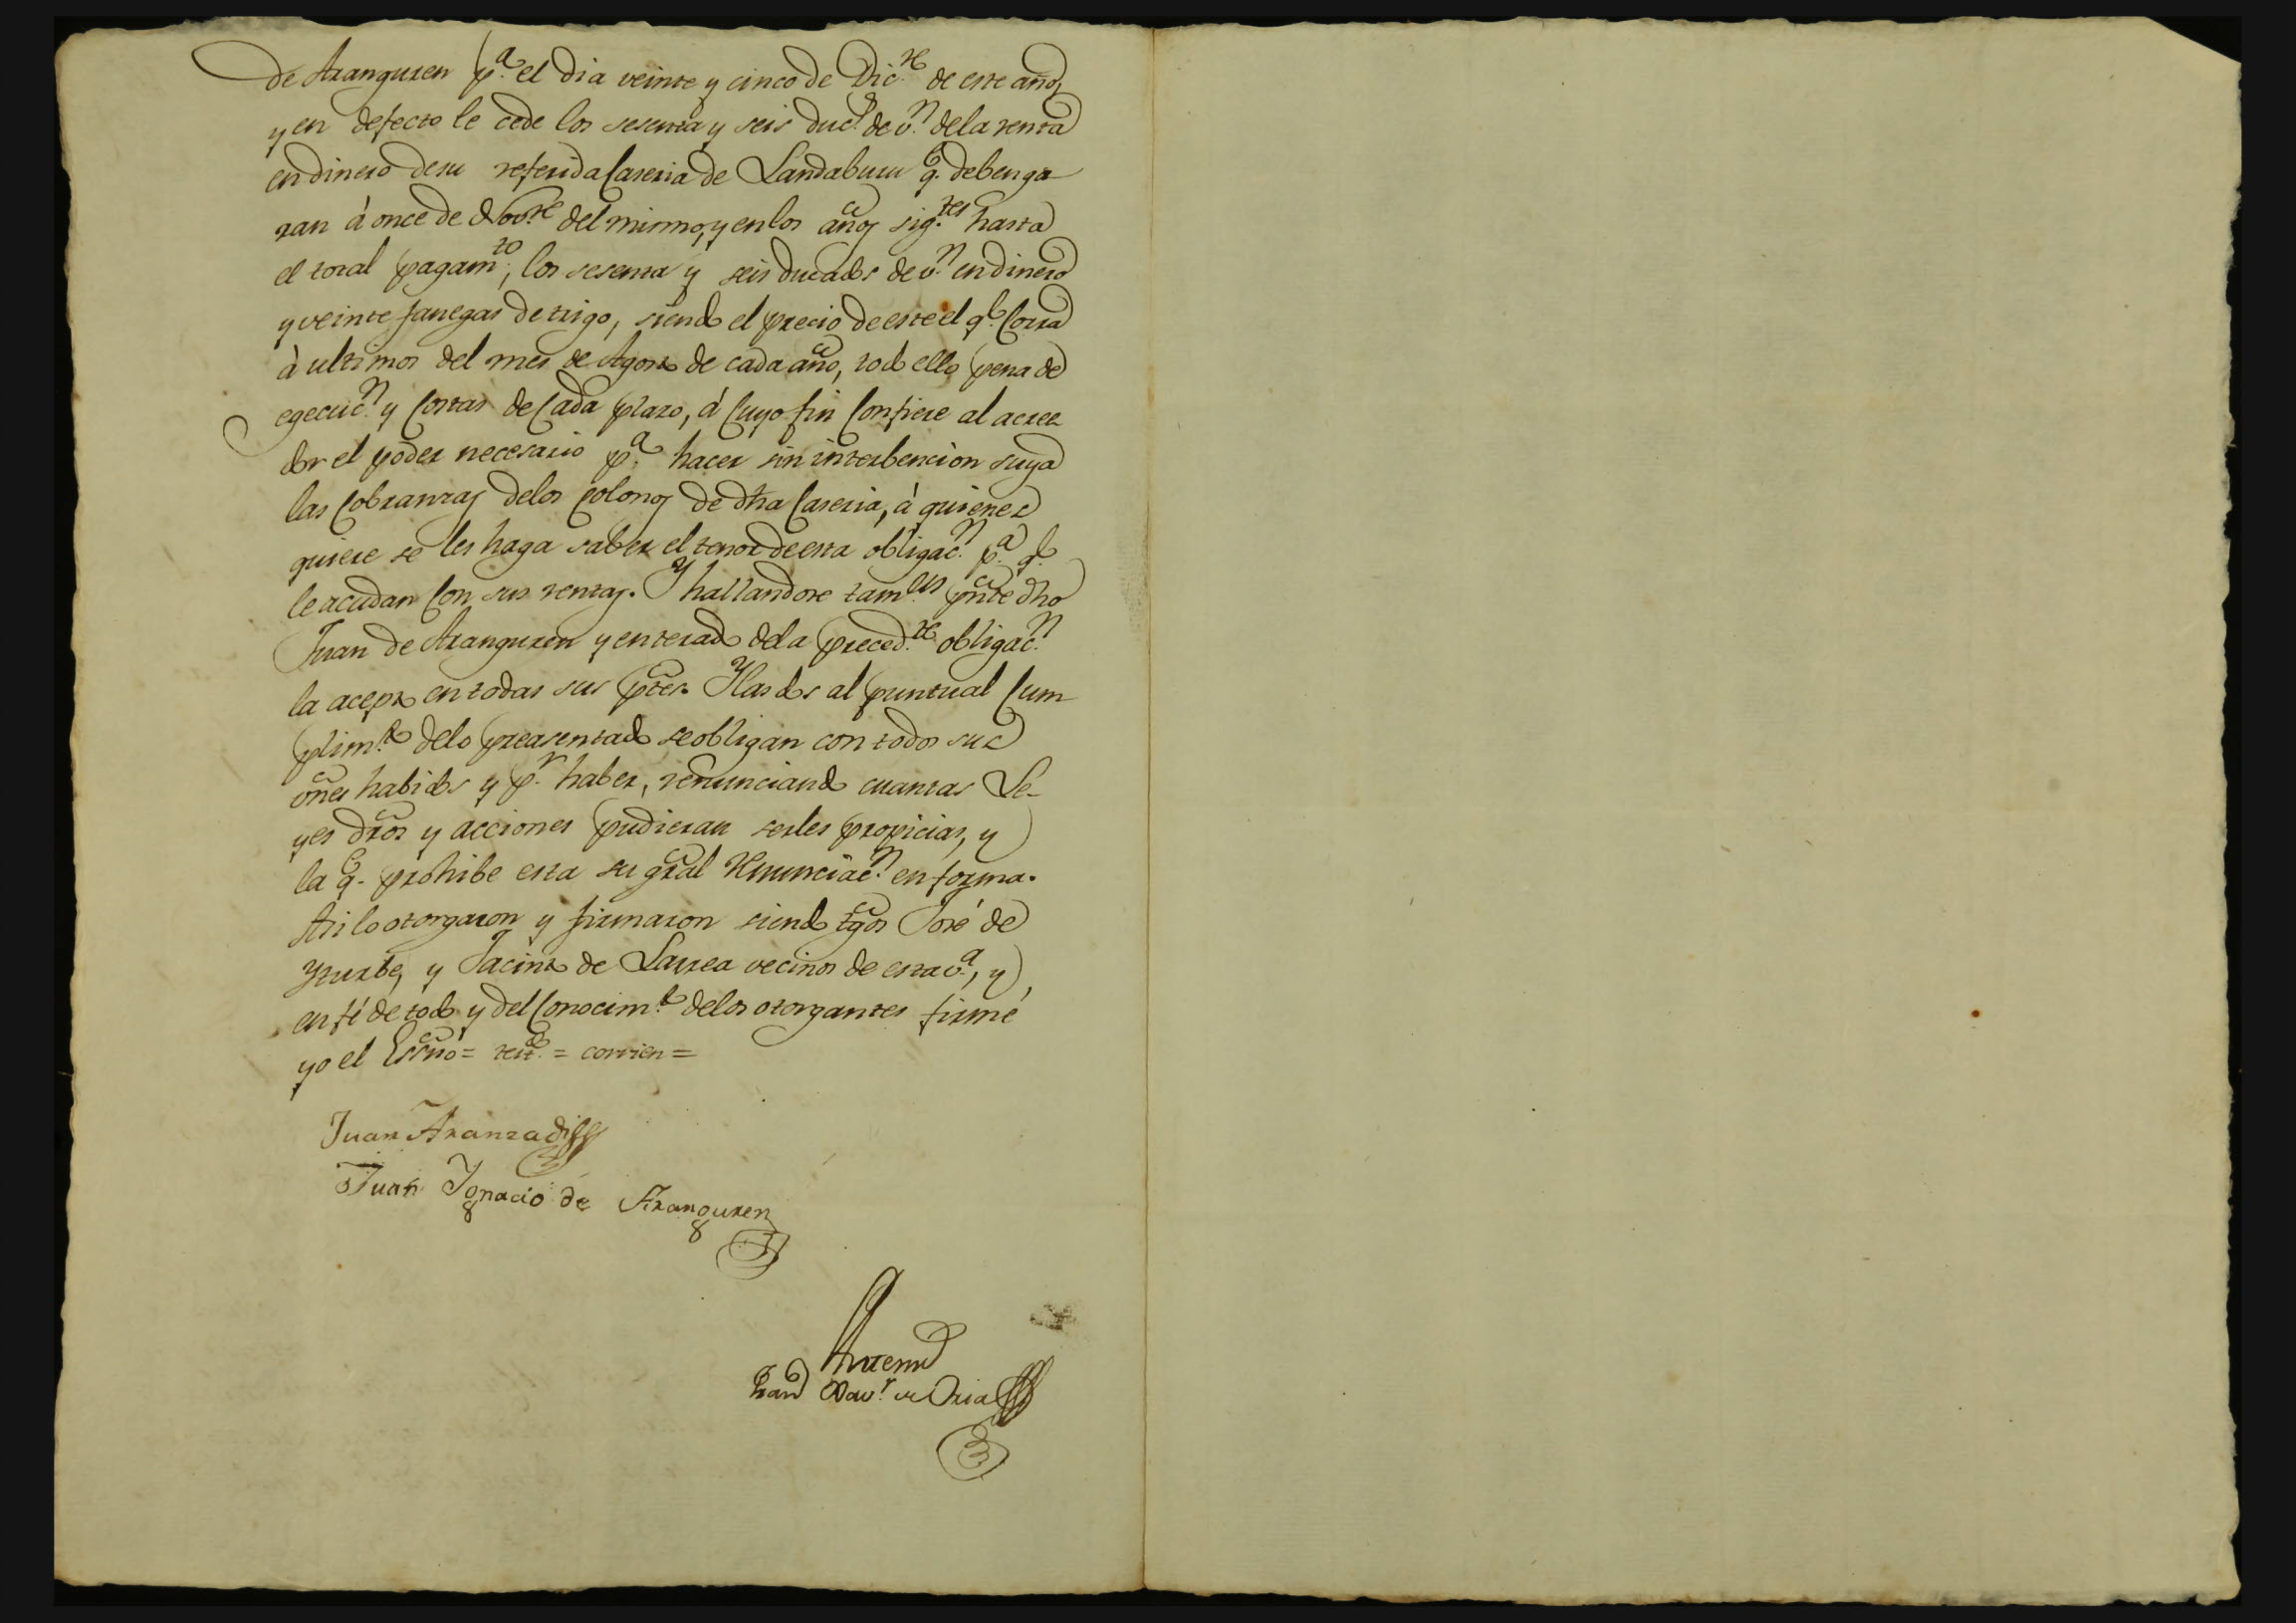 de Aranguren p.ª el dia veinte y cinco de Dic.re de este año,
y en defecto le cede los sesenta y seis duc.s de v.n de la renta
en dinero de su referida Caseria de Landaburu q.e debenga
ran à once de Nov.re del mismo, y en los años sig.tes hasta
el total pagam.to, los sesenta y seis ducados de v.n en dinero
y veinte fanegas de trigo, siendo el precio de este el q.e Corra
à ultimos del mes de Agosto de cada año, todo ello pena de
egecuc.n y Costas de Cada plazo, á Cuyo fin Confiere al acree
dor el poder necesario p.ª hacer sin interbencion suya
las Cobranzas de los Colonos de dha Caseria, à quienes
quiere se les haga saber el tenor de esta obligac.n p.ª q.e
le acudan Con sus rentas. Y hallandose tam.en pnte dho
Juan de Aranguren y enterado de la preced.te obligac.n
la acepto en todas sus ptes. Y las dos al puntual Cum
plim.to de lo preasentado se obligan con todos sus
vnes habidos y p.r haber, renunciando cuantas Le-
yes dros y acciones pudieran serles propicias, y
la q.e prohibe esta su gral renunciac.n en forma.
Asi lo otorgaron y firmaron siendo tgos José de
Yturbe, y Jacinto de Larrea vecinos de esta v.ª, y
en fé de todo y del Conocim.to de los otorgantes firmé
yo el Essno = test.do = corrien =
Juan Aranzadi
Juan Ignacio de Aranguren
Antemi
Fran.co Xav.r de Oria